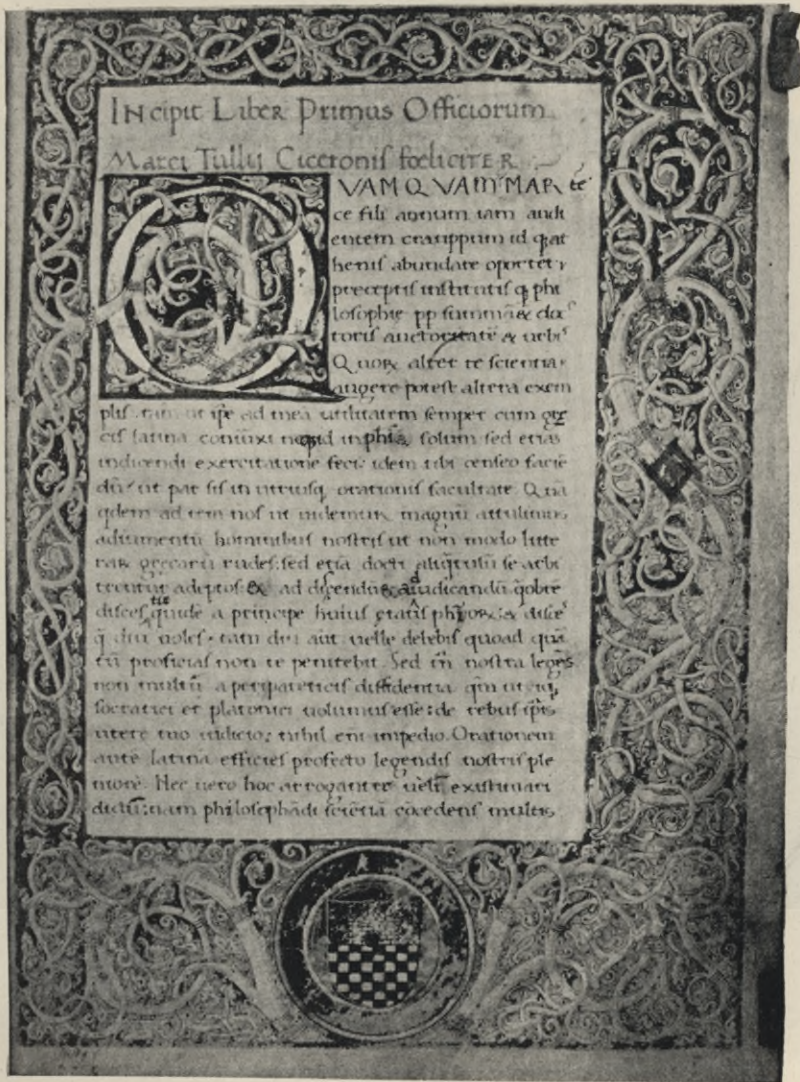 INcipit Liber Primus Officiorum
Marci Tullii Ciceronis fœliciTER
QVAMQVAM MARce te
ce fili annum iam audi
entem cratippum id q; at
henis abundare oportet
preceptis institutis q; phi
losophie pp summā & doc
toris auctoritatē & urbis
Quoꝝ alter te scientia
augere potest altera exem
plis tam ut ipse ad mea utilitatem semper cum gre
cis latina coniūxi neq; id in phīa solum sed etiā
in dicendi exercitatione feci: idem tibi censeo faciē
dū ut par sis in utriusq; orationis facultate Quā
qdem ad rem nos ut uidemur magnū attulimus
adiumentū hominibus nostris ut non modo litte
raꝝ grecaꝝ rudes: sed etiā docti aliq̄tulū se arbi
trentur adeptos & ad dicendū & ad iudicandū q̄obrē
disces quidē a principe huius etatis phoꝝ & disces
q̄ diu uoles: tam diu aut uelle debebis quoad quā
tū proficias non te penitebit. Sed tn̄ nostra leges
non multū a peripateticis dissidentia qm̄ utriq;
socratici et platonici uolumus esse: de rebus ip̄is
utere tuo iudicio: nihil eni impedio. Orationem
autē latina efficies profecto legendis nostris ple
niorē. Nec uero hoc arroganter uelī existimari
dictū: nam philosophādi sciētiā cōcedens multis,